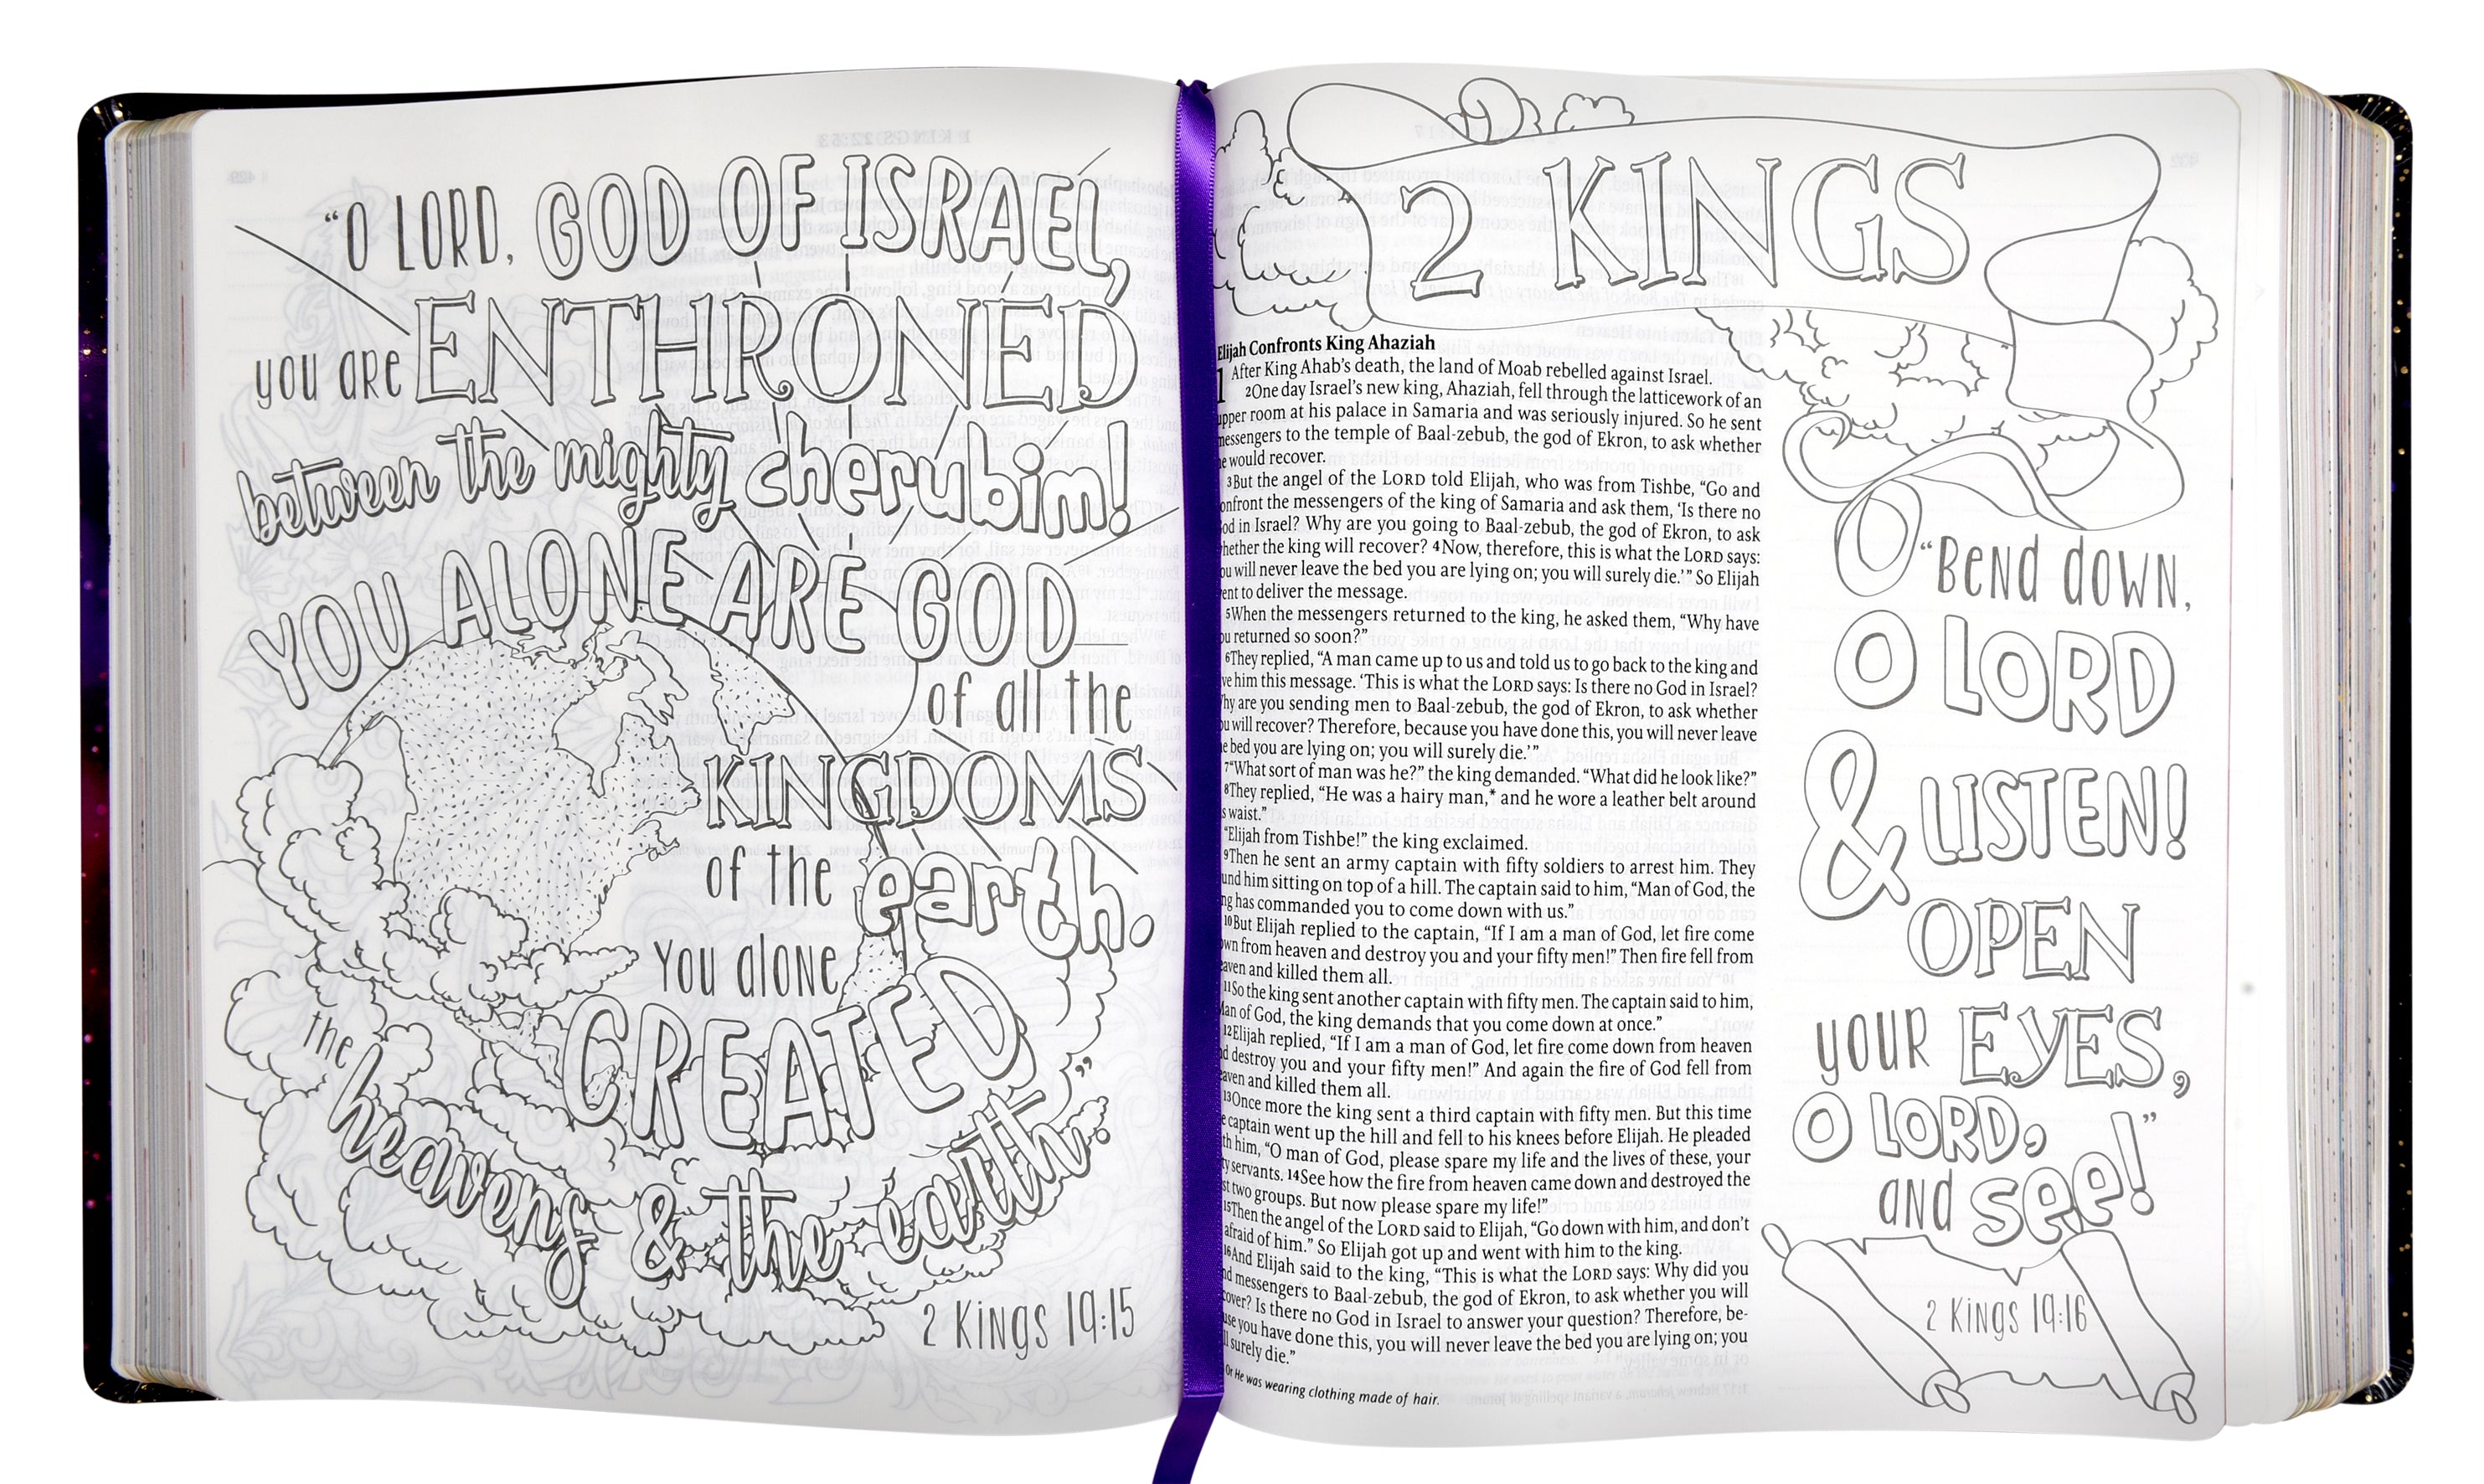 “O LORD, GOD OF ISRAEL,
you are ENTHRONED
between the mighty cherubim!
YOU ALONE ARE GOD
of all the
KINGDOMS
of the earth.
You alone
CREATED
the heavens & the earth.”
2 Kings 19:15
2 KINGS
Elijah Confronts King Ahaziah
1 After King Ahab’s death, the land of Moab rebelled against Israel.
2One day Israel’s new king, Ahaziah, fell through the latticework of an
upper room at his palace in Samaria and was seriously injured. So he sent
messengers to the temple of Baal-zebub, the god of Ekron, to ask whether
he would recover.
3But the angel of the LORD told Elijah, who was from Tishbe, “Go and
confront the messengers of the king of Samaria and ask them, ‘Is there no
God in Israel? Why are you going to Baal-zebub, the god of Ekron, to ask
whether the king will recover? 4Now, therefore, this is what the LORD says:
You will never leave the bed you are lying on; you will surely die.’” So Elijah
went to deliver the message.
5When the messengers returned to the king, he asked them, “Why have
you returned so soon?”
6They replied, “A man came up to us and told us to go back to the king and
give him this message. ‘This is what the LORD says: Is there no God in Israel?
Why are you sending men to Baal-zebub, the god of Ekron, to ask whether
you will recover? Therefore, because you have done this, you will never leave
the bed you are lying on; you will surely die.’”
7“What sort of man was he?” the king demanded. “What did he look like?”
8They replied, “He was a hairy man,* and he wore a leather belt around
his waist.”
“Elijah from Tishbe!” the king exclaimed.
9Then he sent an army captain with fifty soldiers to arrest him. They
found him sitting on top of a hill. The captain said to him, “Man of God, the
king has commanded you to come down with us.”
10But Elijah replied to the captain, “If I am a man of God, let fire come
down from heaven and destroy you and your fifty men!” Then fire fell from
heaven and killed them all.
11So the king sent another captain with fifty men. The captain said to him,
“Man of God, the king demands that you come down at once.”
12Elijah replied, “If I am a man of God, let fire come down from heaven
and destroy you and your fifty men!” And again the fire of God fell from
heaven and killed them all.
13Once more the king sent a third captain with fifty men. But this time
the captain went up the hill and fell to his knees before Elijah. He pleaded
with him, “O man of God, please spare my life and the lives of these, your
fifty servants. 14See how the fire from heaven came down and destroyed the
first two groups. But now please spare my life!”
15Then the angel of the LORD said to Elijah, “Go down with him, and don’t
be afraid of him.” So Elijah got up and went with him to the king.
16And Elijah said to the king, “This is what the LORD says: Why did you
send messengers to Baal-zebub, the god of Ekron, to ask whether you will
recover? Is there no God in Israel to answer your question? Therefore, be-
cause you have done this, you will never leave the bed you are lying on; you
will surely die.”
Or He was wearing clothing made of hair.
“Bend down,
O LORD
& LISTEN!
OPEN
your EYES,
O LORD,
and see!”
2 Kings 19:16